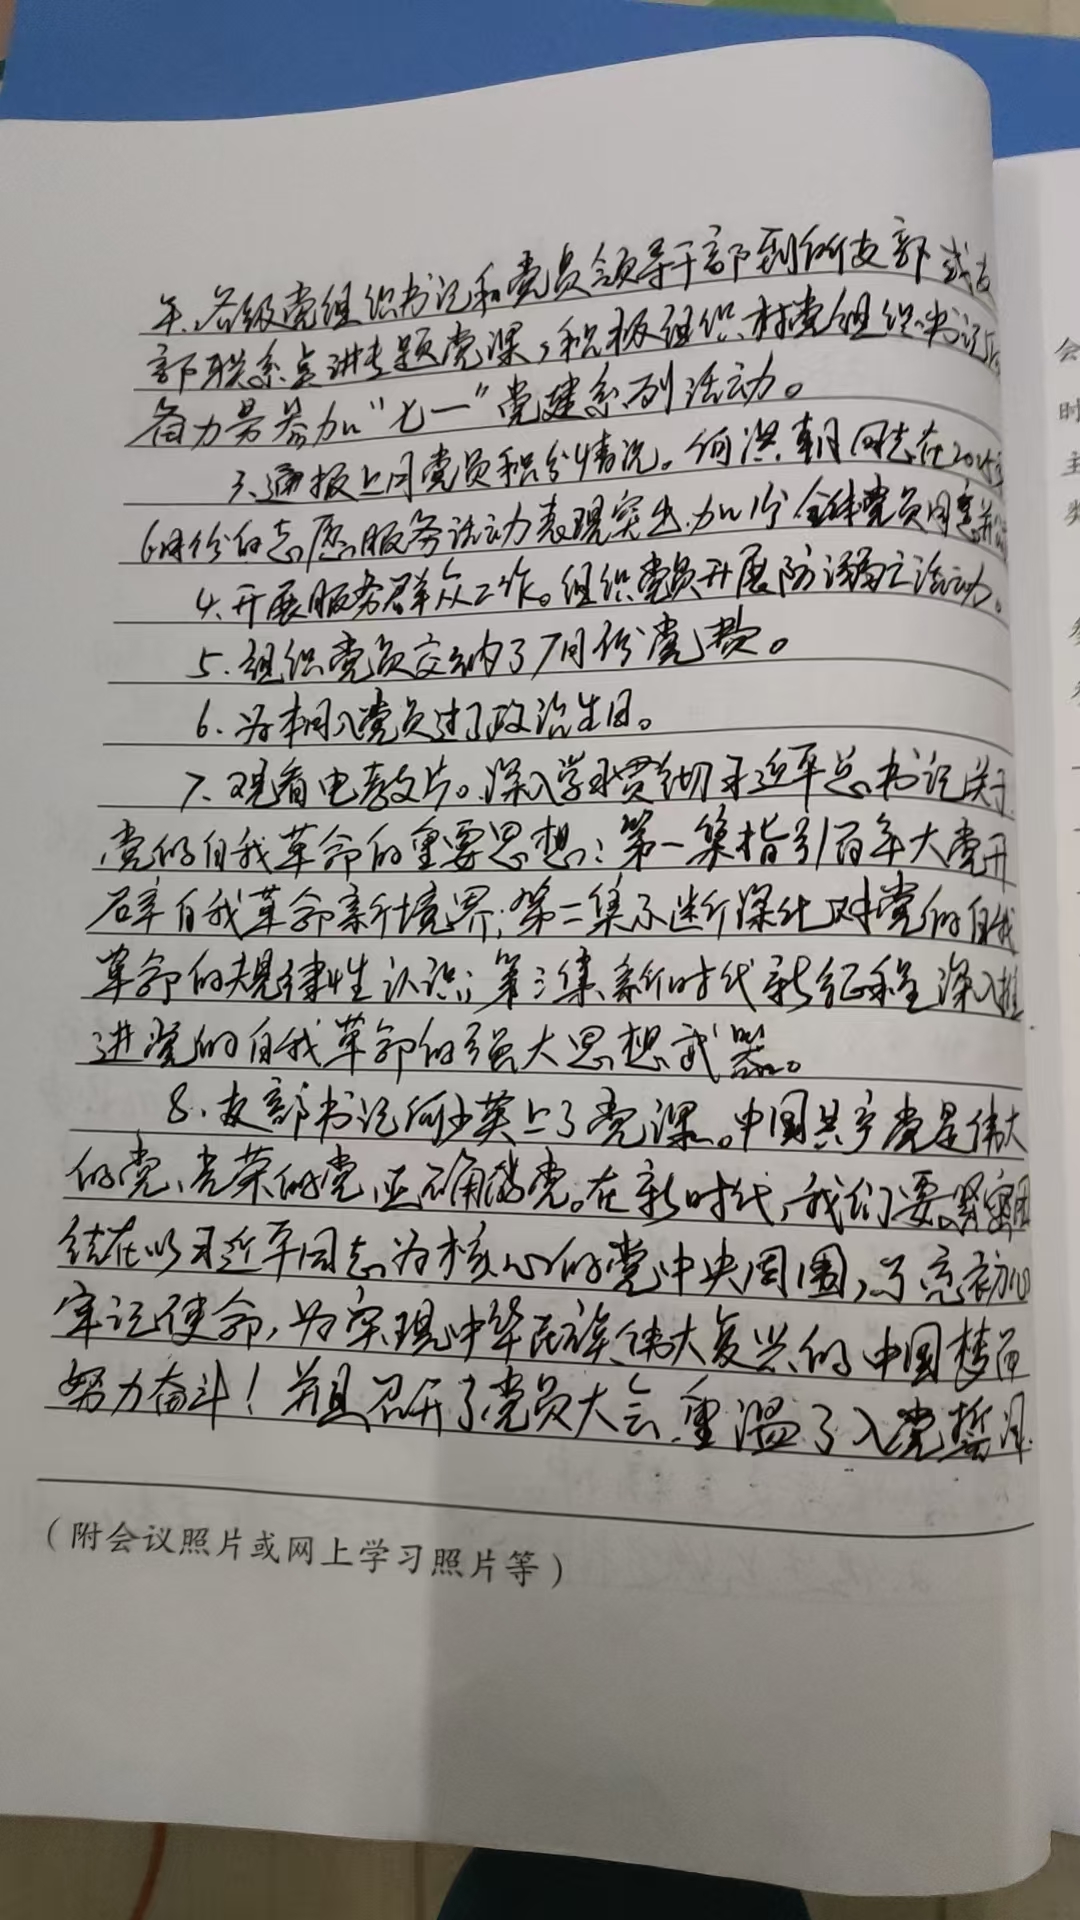 年、各级党组织书记和党员领导干部到所支部或支
部联系点讲专题党课，积极组织村党组织书记后
备力量参加“七一”党建系列活动。
3、通报上月党员积分情况。何洪朝同志在2025年
6月份的志愿服务活动表现突出，加1分 全体党员同意并
4、开展服务群众工作。组织党员开展防溺亡活动。
5、组织党员交纳了7月份党费。
6、为本月入党党员过了政治生日。
7、观看电教片。深入学习贯彻习近平总书记关于
党的自我革命的重要思想：第一集指引百年大党开
辟自我革命新境界；第二集不断深化对党的自我
革命的规律性认识；第三集新时代新征程深入推
进党的自我革命的强大思想武器。
8、支部书记何少英上了党课。中国共产党是伟大
的党、光荣的党、正确的党。在新时代，我们要紧密团
结在以习近平同志为核心的党中央周围，不忘初心
牢记使命，为实现中华民族伟大复兴的中国梦而
努力奋斗！并且召开了党员大会，重温了入党誓词
（附会议照片或网上学习照片等）
会
时
主
类